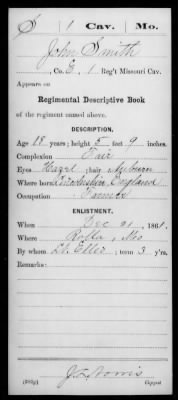 S | 1 | Cav. | Mo.
John Smith
, Co. E, 1 Reg't Missouri Cav.
Appears on
Regimental Descriptive Book
of the regiment named above.
DESCRIPTION.
Age 18 years; height 5 feet 9 inches.
Complexion Fair
Eyes Hazel; hair Auburn
Where born Lincolnshire England
Occupation Farmer
ENLISTMENT.
When Dec 21, 1861.
Where Rolla, Mo
By whom Lt. Ellis; term 3 y'rs.
Remarks:
J. Norris
Copyist.